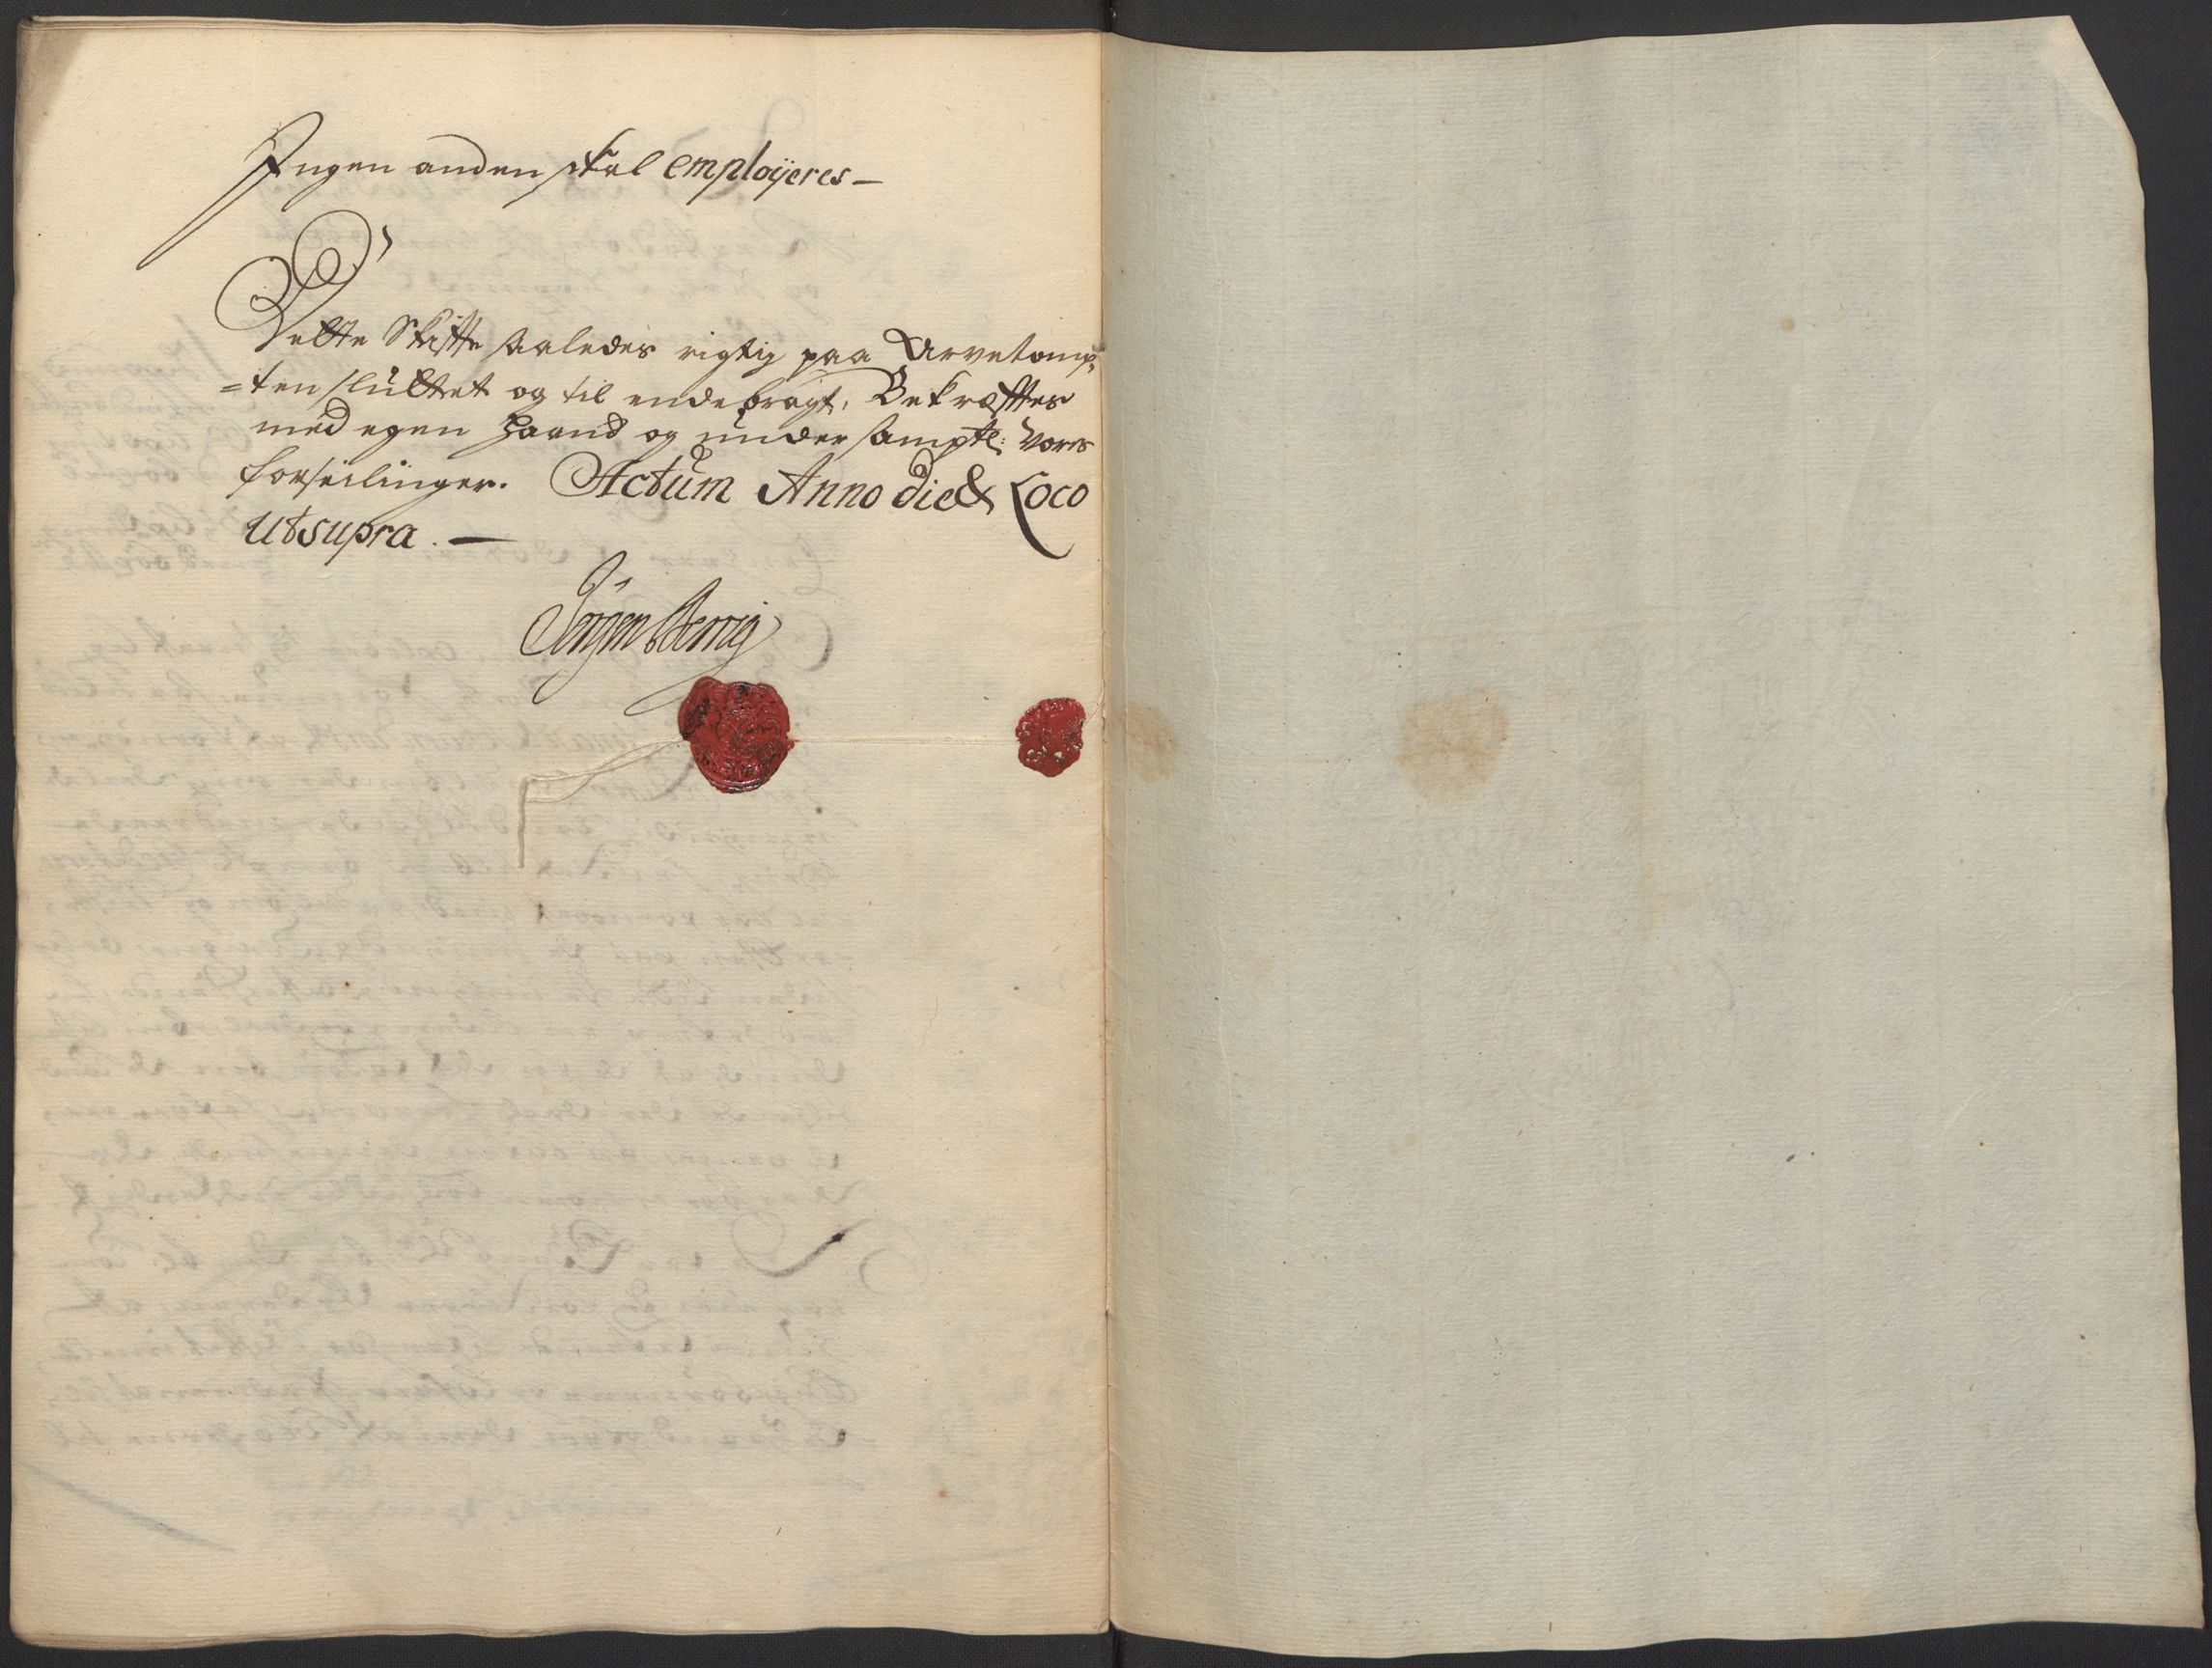 Ingen anden skal employeres —
Dette Skifte saaledes rigtig paa Arvetomp-
=ten sluttet og til endebragt, Bekræfftes
med egen Haand og under samptl: Vores
forseilinger. Actum Anno die & Loco
Utsupra. —
Jørgen